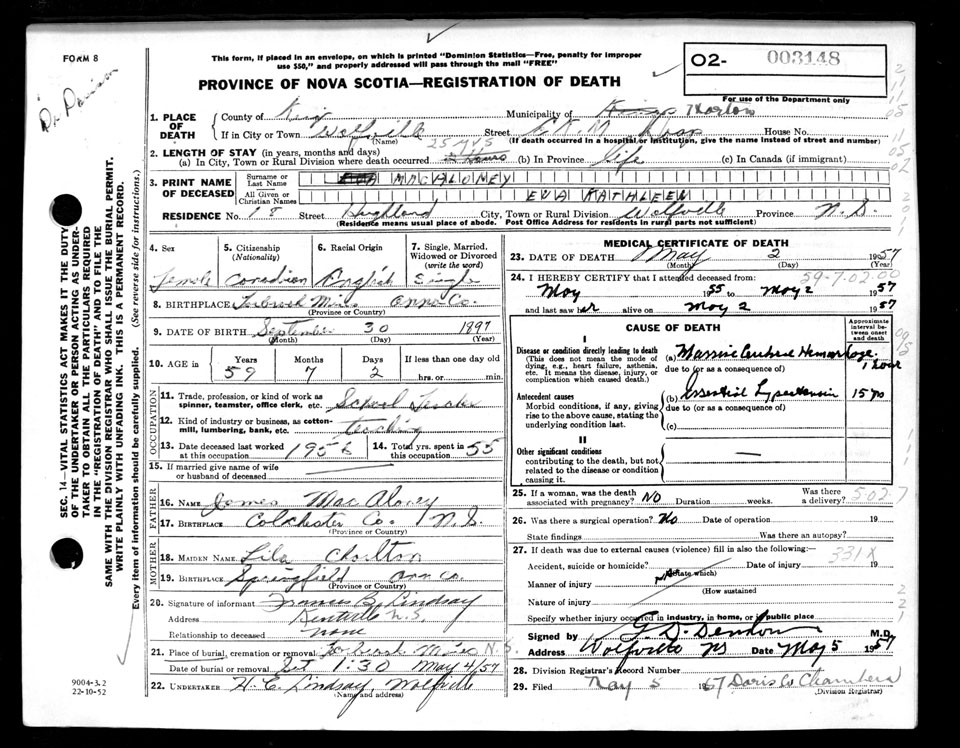 FORM 8
This form, if placed in an envelope, on which is printed "Dominion Statistics—Free, penalty for improper
use $50," and properly addressed will pass through the mail "FREE"
PROVINCE OF NOVA SCOTIA—REGISTRATION OF DEATH
02- 003148
For use of the Department only
SEC. 14—VITAL STATISTICS ACT MAKES IT THE DUTY
OF THE UNDERTAKER OR PERSON ACTING AS UNDER-
TAKER TO OBTAIN ALL THE PARTICULARS REQUIRED
IN THE "REGISTRATION OF DEATH" AND TO FILE THE
SAME WITH THE DIVISION REGISTRAR WHO SHALL ISSUE THE BURIAL PERMIT.
WRITE PLAINLY WITH UNFADING INK. THIS IS A PERMANENT RECORD.
Every item of information should be carefully supplied. (See reverse side for instructions.)
1. PLACE OF DEATH
County of Municipality of
If in City or Town Wolfville Street House No.
(Name) (If death occurred in a hospital or institution, give the name instead of street and number)
2. LENGTH OF STAY (in years, months and days) 25 yrs
(a) In City, Town or Rural Division where death occurred (b) In Province life (c) In Canada (if immigrant)
3. PRINT NAME OF DECEASED
Surname or Last Name MACALONEY
All Given or Christian Names EVA KATHLEEN
RESIDENCE No. 18 Street Highland City, Town or Rural Division Wolfville Province N.S.
(Residence means usual place of abode. Post Office Address for residents in rural parts not sufficient)
4. Sex 5. Citizenship (Nationality) 6. Racial Origin 7. Single, Married, Widowed or Divorced (write the word)
Female Canadian English Single
8. BIRTHPLACE Torbrook Mines Anna Co.
(Province or Country)
9. DATE OF BIRTH September 30 1897
(Month) (Day) (Year)
10. AGE in Years Months Days If less than one day old
59 7 2 hrs. or min.
OCCUPATION
11. Trade, profession, or kind of work as spinner, teamster, office clerk, etc. School Teacher
12. Kind of industry or business, as cotton-mill, lumbering, bank, etc. teaching
13. Date deceased last worked at this occupation 1956 14. Total yrs. spent in this occupation 35
15. If married give name of wife or husband of deceased
FATHER
16. NAME James MacAloney
17. BIRTHPLACE Colchester Co. N.S.
(Province or Country)
MOTHER
18. MAIDEN NAME Lila Charlton
19. BIRTHPLACE Springfield Ann Co.
(Province or Country)
20. Signature of informant Frances B. Lindsay
Address Kentville N.S.
Relationship to deceased none
21. Place of burial, cremation or removal Torbrook Mines N.S.
Date of burial or removal Sat 1:30 May 4/57
22. UNDERTAKER H. E. Lindsay, Wolfville
(Name and address)
9004-3.2
22-10-52
MEDICAL CERTIFICATE OF DEATH
23. DATE OF DEATH May 2 1957
(Month) (Day) (Year)
24. I HEREBY CERTIFY that I attended deceased from: 59-7-02.00
May 1955 to May 2 1957
and last saw her alive on May 2 1957
CAUSE OF DEATH
Approximate interval between onset and death
I
Disease or condition directly leading to death (a) Massive Cerebral Hemorrhage. 1 hour
(This does not mean the mode of dying, e.g., heart failure, asthenia, etc. It means the disease, injury, or complication which caused death.)
due to (or as a consequence of)
Antecedent causes (b) Essential Hypertension 15 yrs
Morbid conditions, if any, giving rise to the above cause, stating the underlying condition last.
due to (or as a consequence of)
(c)
II
Other significant conditions —
contributing to the death, but not related to the disease or condition causing it.
25. If a woman, was the death associated with pregnancy? No Duration weeks. Was there a delivery?
26. Was there a surgical operation? No Date of operation 19
State findings Was there an autopsy?
27. If death was due to external causes (violence) fill in also the following:—
331X
Accident, suicide or homicide? Date of injury 19
(State which)
Manner of injury
(How sustained
Nature of injury
Specify whether injury occurred in industry, in home, or in public place
Signed by M.D.
Address Wolfville NS Date May 5 1957
28. Division Registrar's Record Number
29. Filed May 5 1957 Doris W Chambers
(Division Registrar)